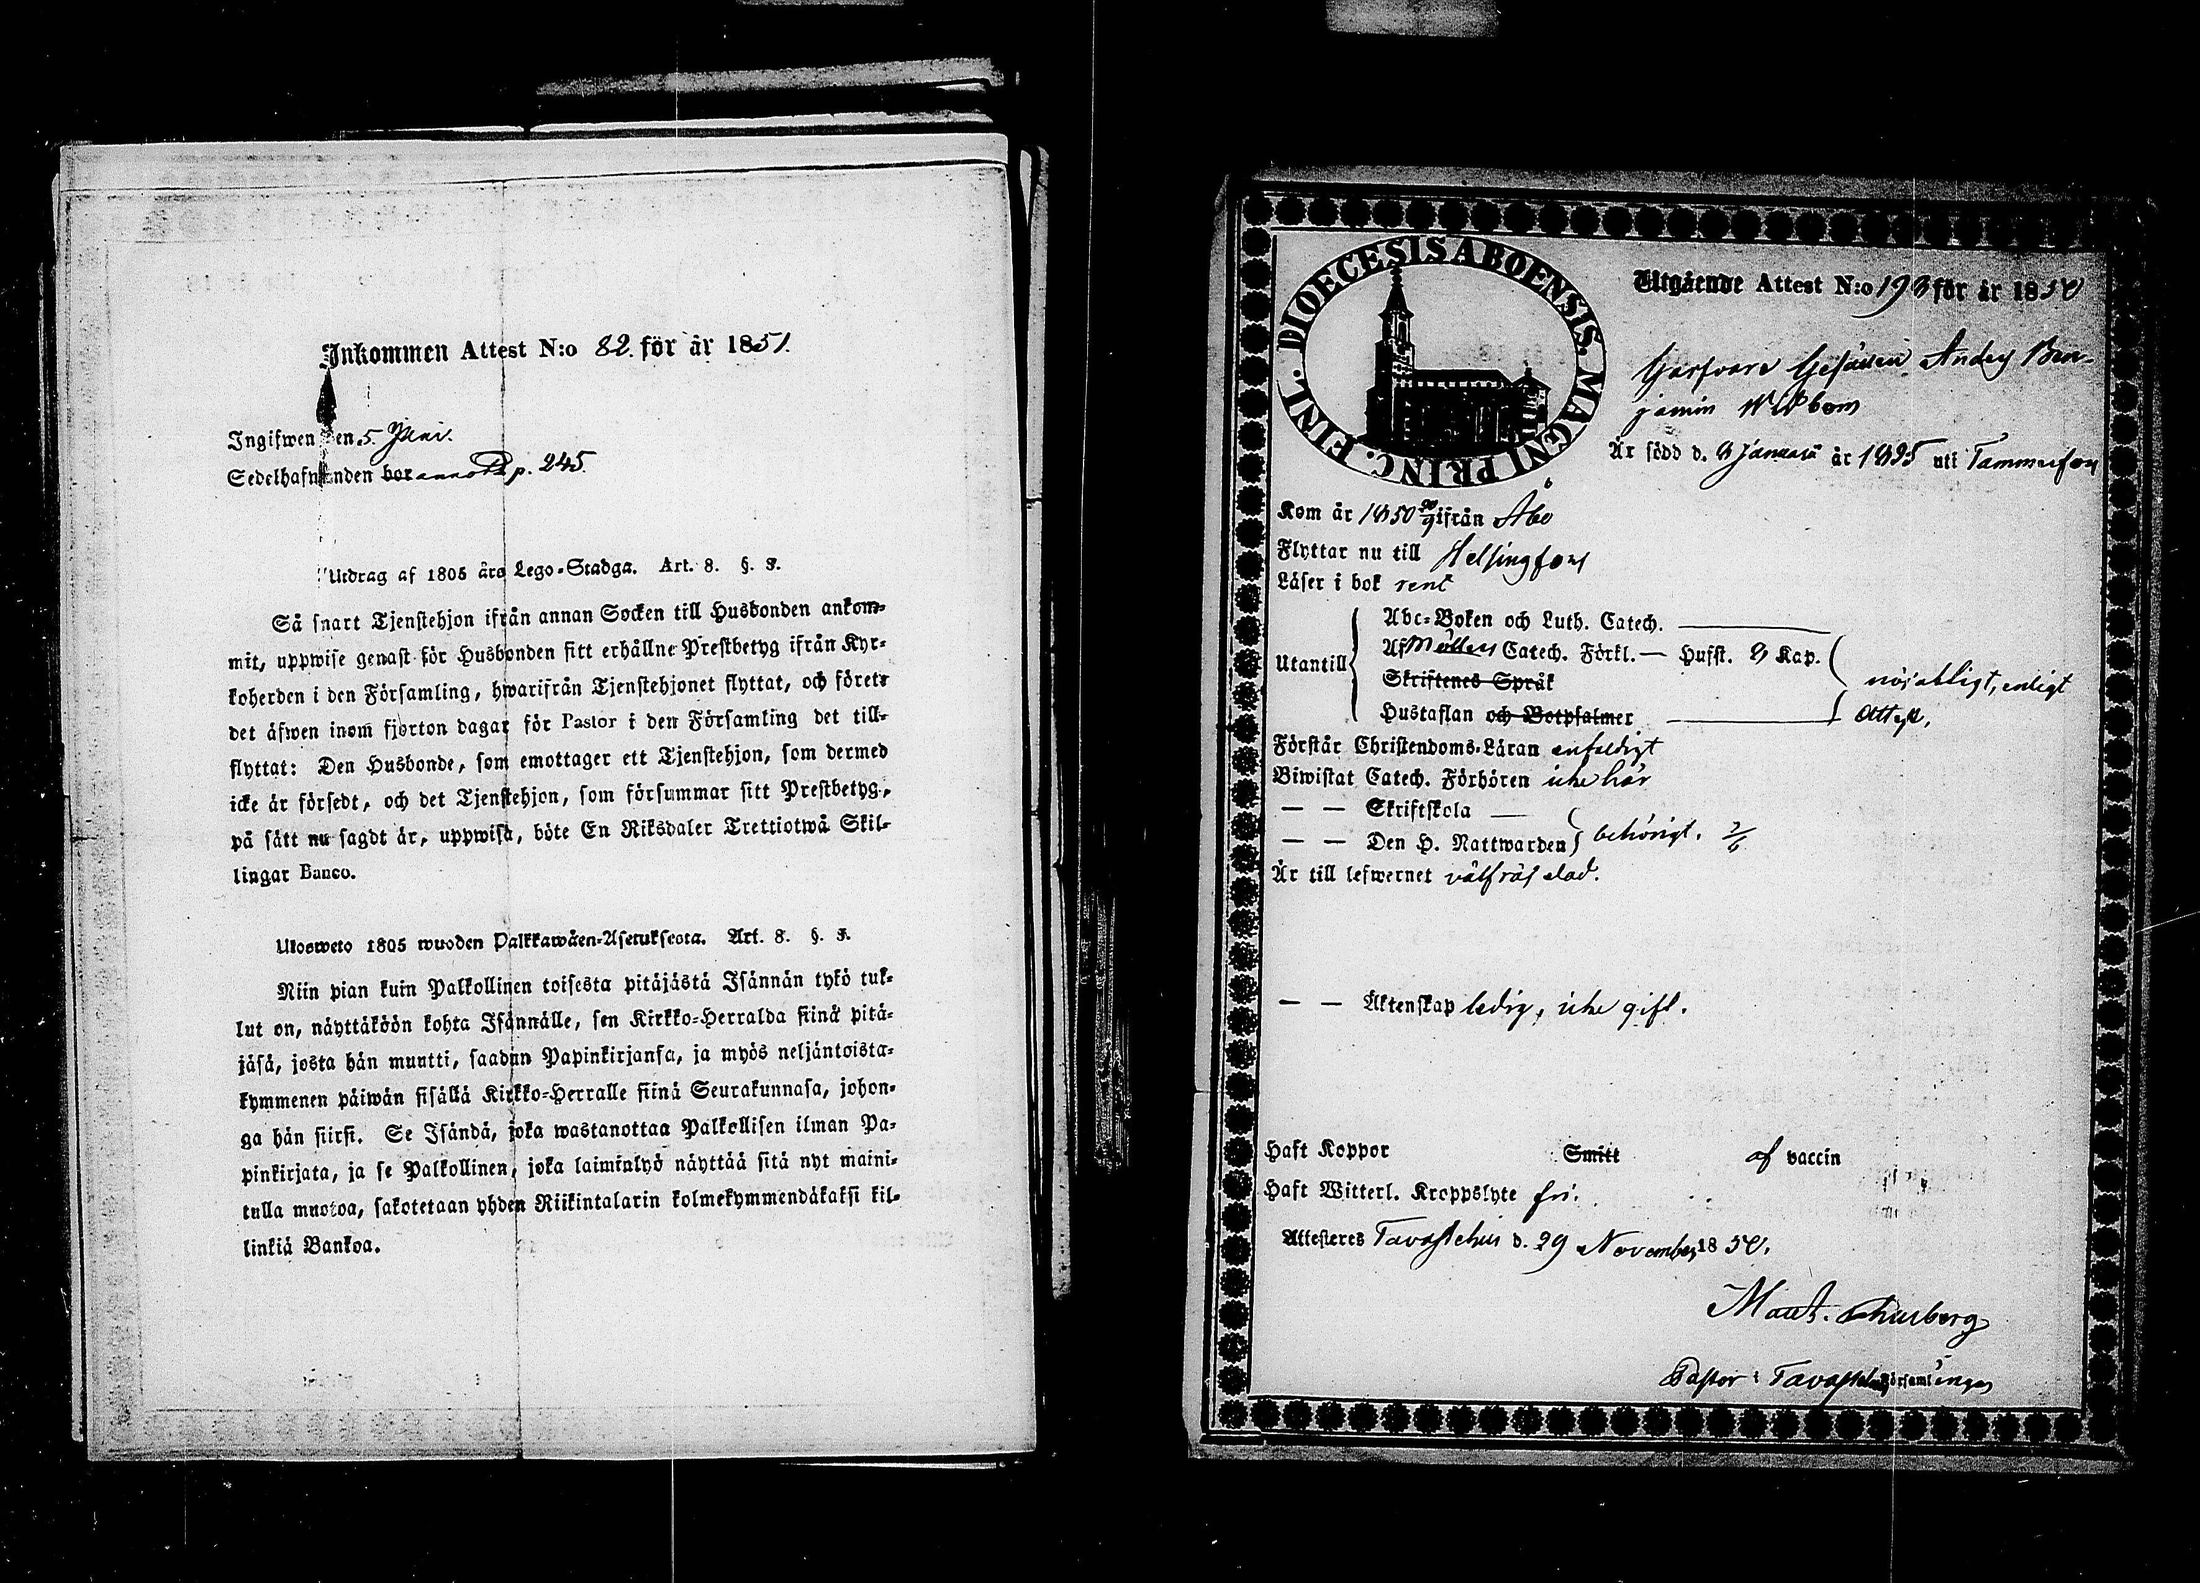 Inkommen Attest N:o 82. för år 1851.
Ingifwen den 5. Juni.
Sedelhafwanden bor annot. p. 245.
Utdrag af 1805 års Lego-Stadga. Art. 8. §. 3.
Så snart Tjenstehjon ifrån annan Socken till Husbonden ankom-
mit, uppwise genast för Husbonden sitt erhållne Prestbetyg ifrån Kyr-
koherden i den Församling, hwarifrån Tjenstehjonet flyttat, och förete
det äfwen inom fjorton dagar för Pastor i den Församling det till-
flyttat: Den Husbonde, som emottager ett Tjenstehjon, som dermed
icke är försedt, och det Tjenstehjon, som försummar sitt Prestbetyg,
på sätt nu sagdt är, uppwisa, böte En Riksdaler Trettiotwå Skil-
lingar Banco.
Ulosweto 1805 wuoden Palkkawäen-Asetuksesta. Art. 8. §. 3.
Niin pian kuin Palkollinen toisesta pitäjästä Isännän tykö tul-
lut on, näyttäköön kohta Isännälle, sen Kirkko-Herralda siinä pitä-
jäsä, josta hän muutti, saadun Papinkirjansa, ja myös neljäntoista-
kymmenen päiwän sisällä Kirkko-Herralle siinä Seurakunnasa, johon-
ga hän siirsi. Se Isändä, joka wastanottaa Palkollisen ilman Pa-
pinkirjata, ja se Palkollinen, joka laiminlyö näyttää sitä nyt maini-
tulla muotoa, sakotetaan yhden Riikintalarin kolmekymmendäkaksi kil-
linkiä Bankoa.
DIOECESIS ABOENSIS. MAGNI PRINC. FINL.
Utgående Attest N:o 193 för år 1850
Garfvare Gesällen Anders Ben-
jamin Wikbom
Är född d. 8 Januari år 1825 uti Tammerfors
Kom år 1850 20/9 ifrån Åbo
Flyttar nu till Helsingfors
Läser i bok rent
Utantill
Abc-Boken och Luth. Catech.
Af Möllers Catech. Förkl. — Hufst. 8 Kap.
Skriftenes Språk
nöjaktigt, enligt
Hustaflan och Botpsalmer
Attest.
Förstår Christendoms-Läran enfaldigt
Biwistat Catech. Förhören icke här
— — Skriftskola —
— — Den H. Nattwarden behörigt. 2/6
Är till lefwernet välfräjdad.
— — Äktenskap ledig, icke gift.
Haft Koppor Smitt af vaccin
Haft Witterl. Kroppslyte fri.
Attesteres Tavastehus d. 29 November 1850.
Maut. Thurberg
Pastor i Tavastehus Församlingar